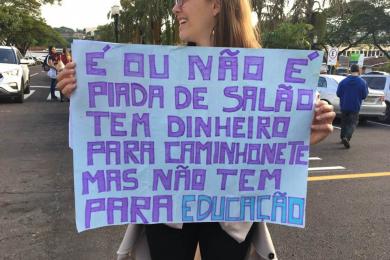 É OU NÃO É
PIADA DE SALÃO
TEM DINHEIRO
PARA CAMINHONETE
MAS NÃO TEM
PARA EDUCAÇÃO